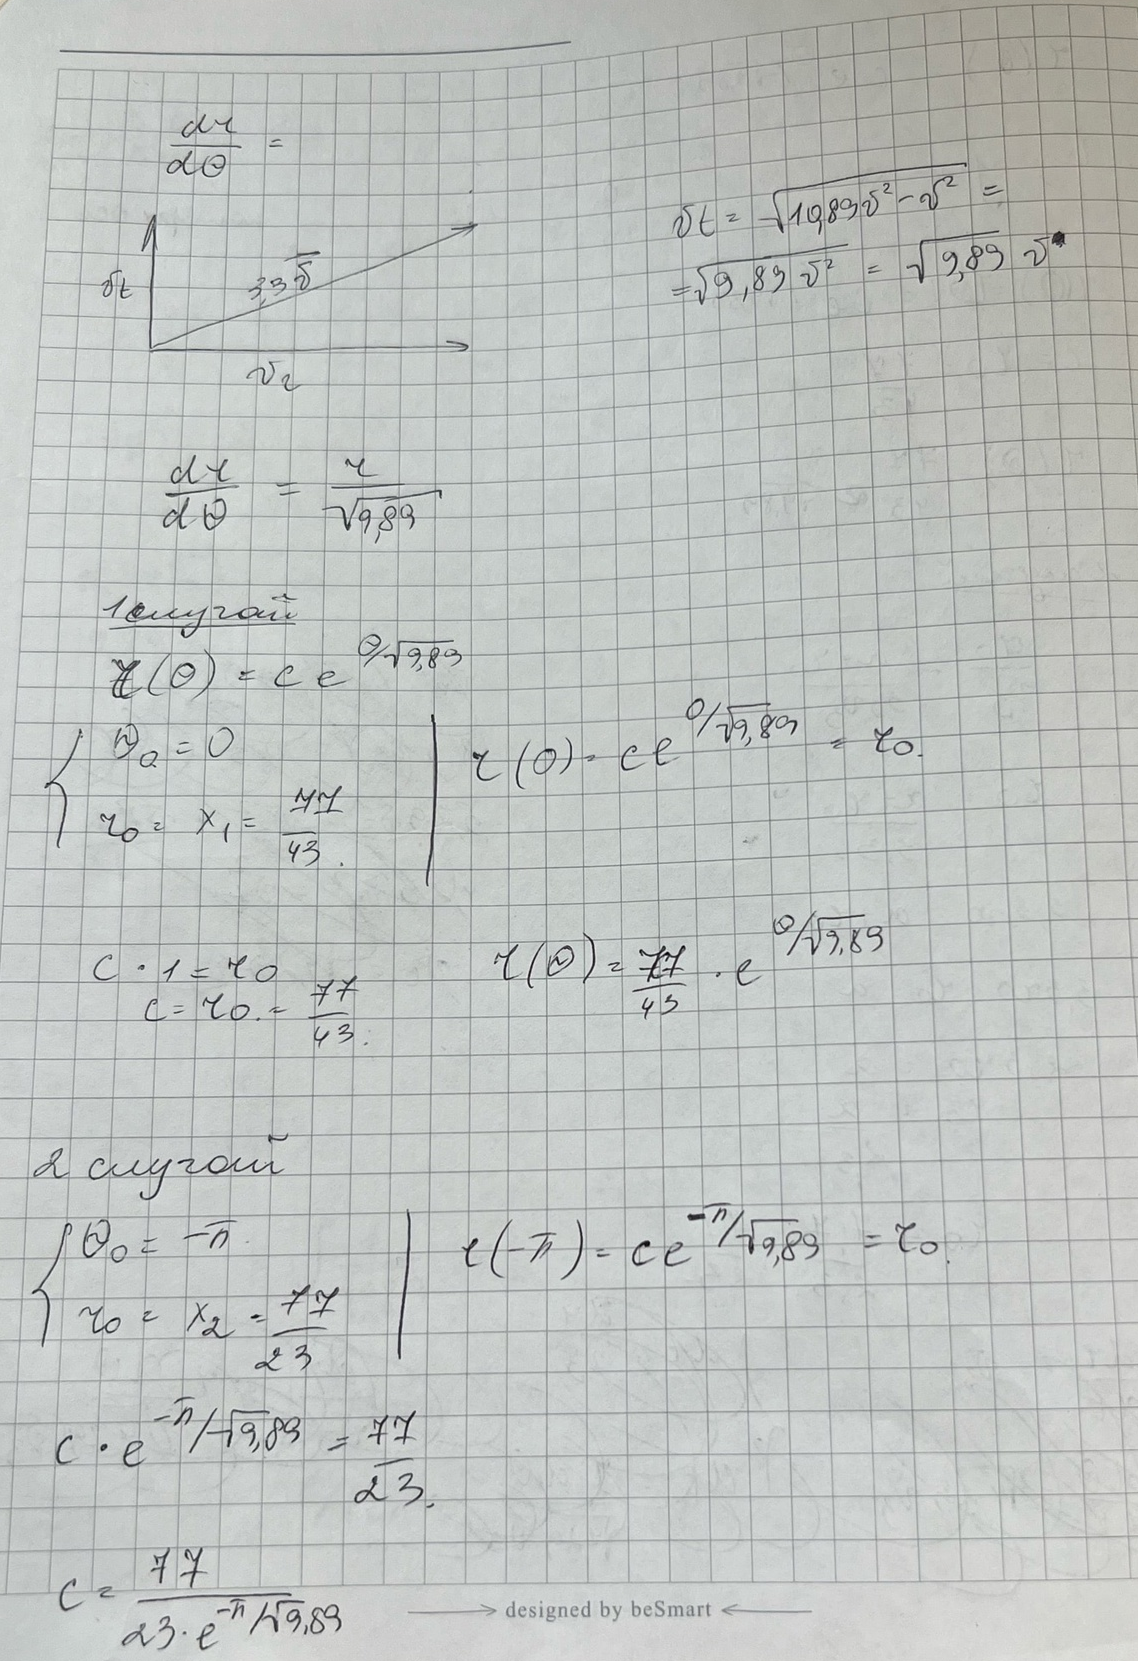 dr/dθ =
vt = √(10,89v² - v²) =
= √(9,89 v²) = √9,89 v
vt
3,3v̅
vr
dr/dθ = r/√9,89
1 случай
r(θ) = c e^(θ/√9,89)
{ θ₀ = 0
r₀ = x₁ = 77/43.
r(0) = c e^(0/√9,89) = r₀.
c · 1 = r₀
c = r₀. = 77/43.
r(θ) = 77/43 · e^(θ/√9,89)
2 случай
{ θ₀ = -π.
r₀ = x₂ = 77/23
r(-π) = c e^(-π/√9,89) = r₀.
c · e^(-π/√9,89) = 77/23.
c = 77/(23·e^(-π/√9,89))
designed by beSmart